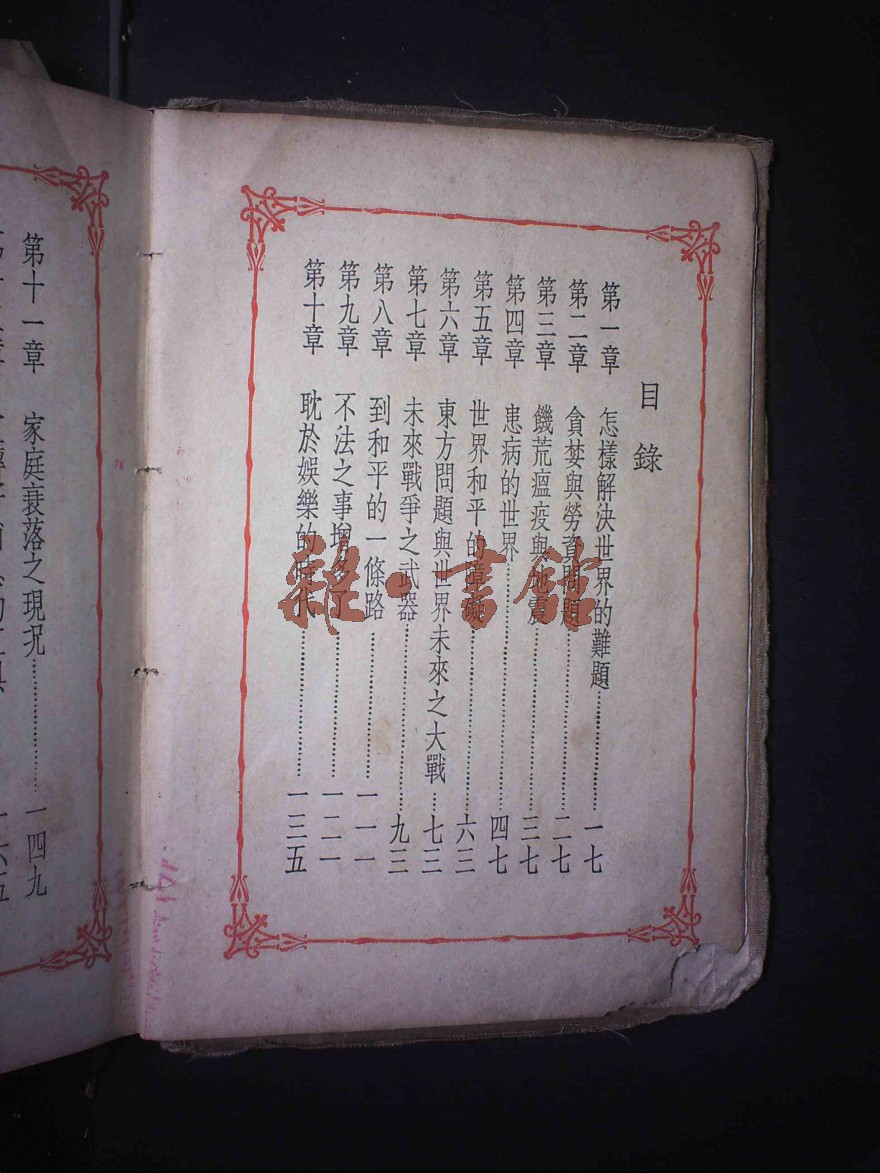 目錄
第一章 怎樣解決世界的難題⋯⋯⋯⋯一七
第二章 貪婪與勞資問題⋯⋯⋯⋯二七
第三章 饑荒瘟疫與地震⋯⋯⋯⋯三七
第四章 患病的世界⋯⋯⋯⋯四七
第五章 世界和平的障礙⋯⋯⋯⋯六三
第六章 東方問題與世界未來之大戰⋯七三
第七章 未來戰爭之武器⋯⋯⋯⋯九三
第八章 到和平的一條路⋯⋯⋯⋯一一一
第九章 不法之事增多了⋯⋯⋯⋯一二一
第十章 耽於娛樂的時代⋯⋯⋯⋯一三五
第十一章 家庭衰落之現況⋯⋯⋯⋯一四九
雜·書館